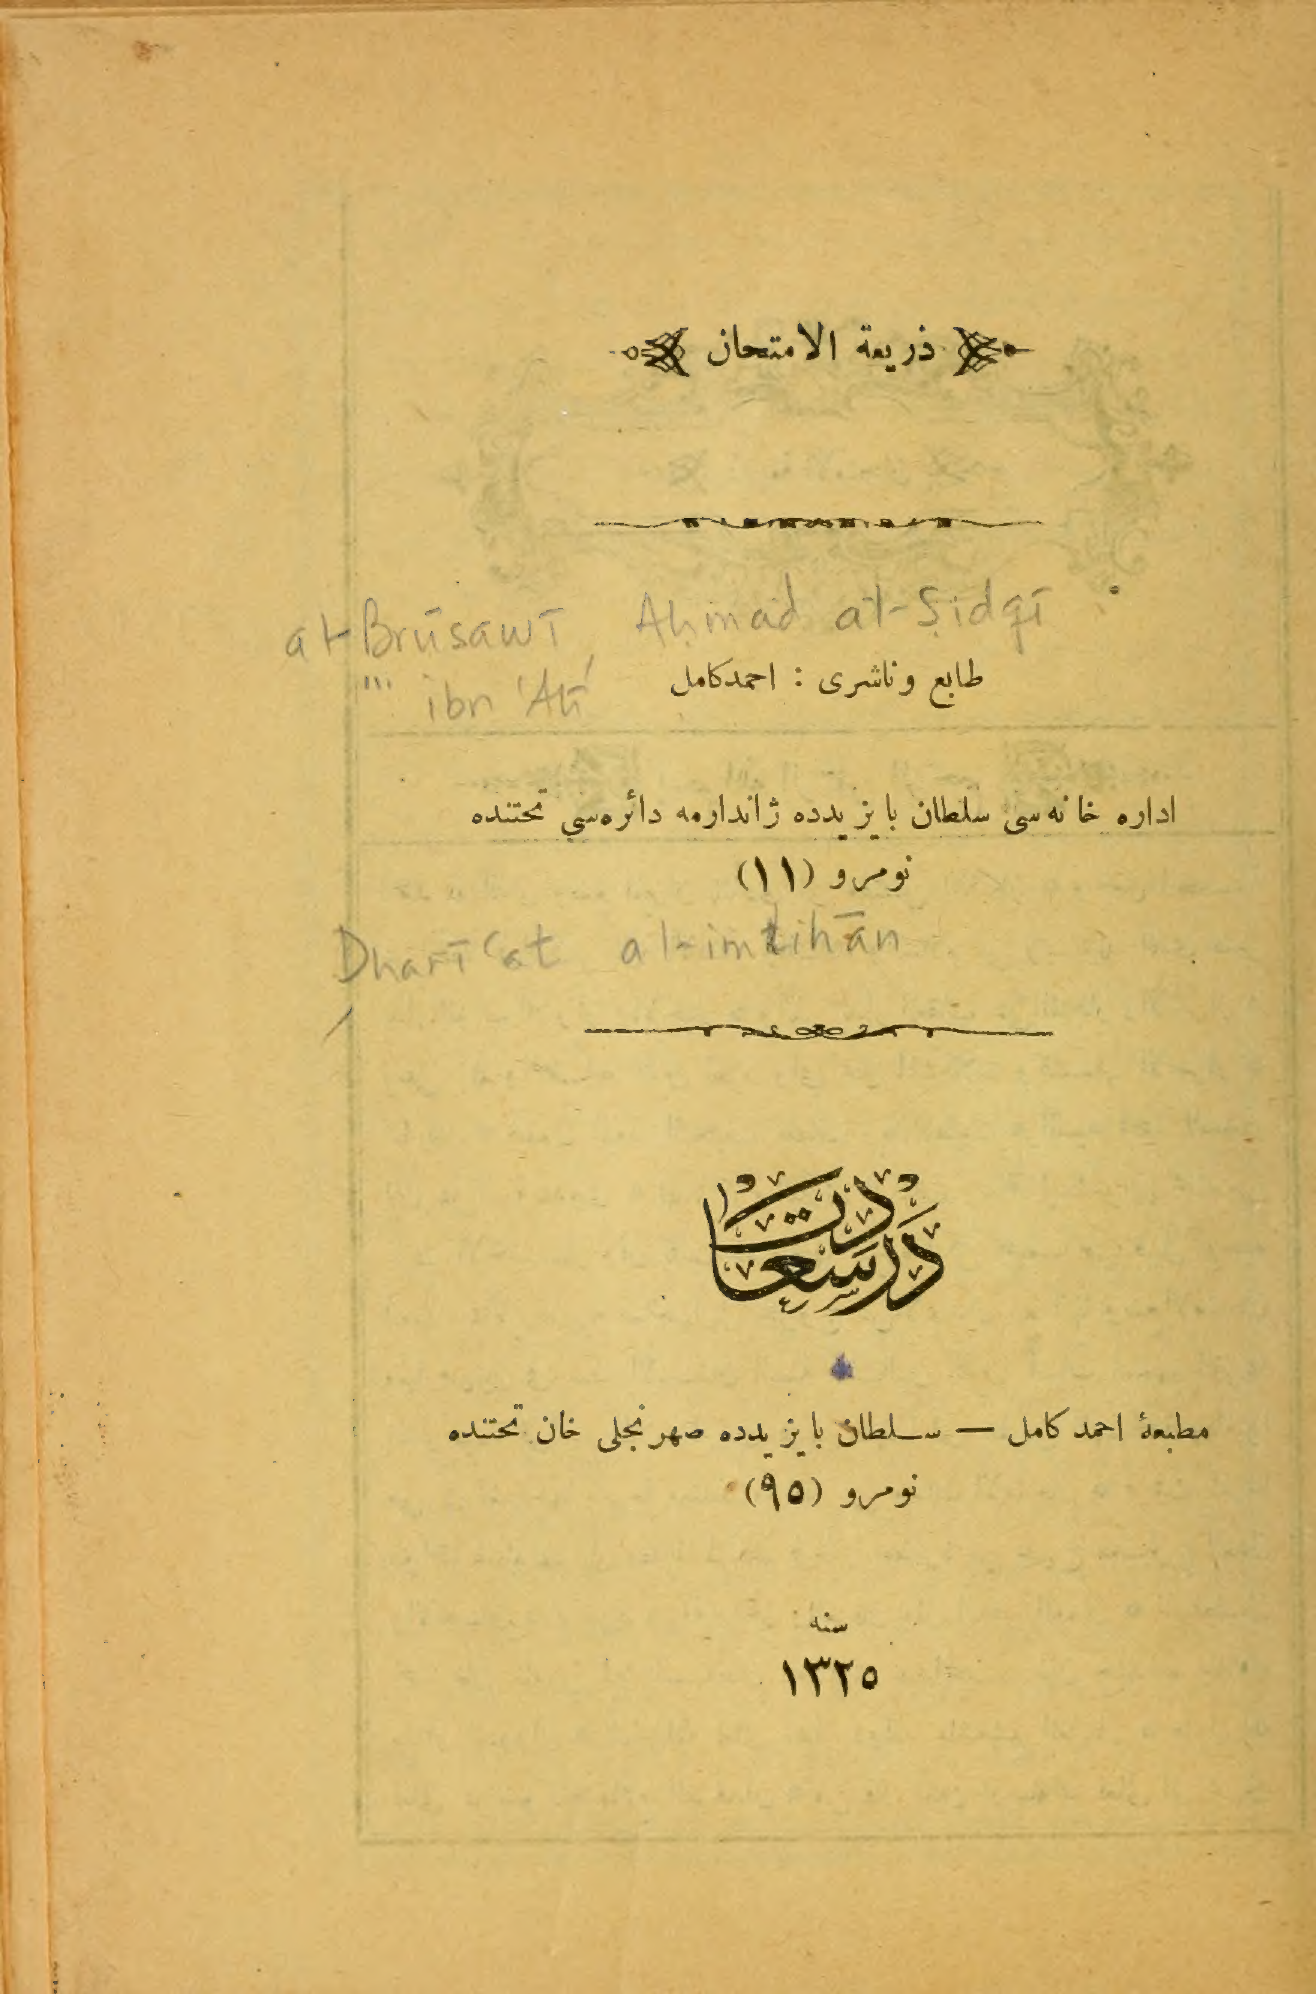 ذريعة الامتحان
al-Brūsawī, Aḥmad al-Ṣidqī
ibn ʻAlī
طابع وناشرى : احمد كامل
اداره خانه سى سلطان بايزيدده ژاندارمه دائره سي تحتنده
نومرو (١١)
Dharīʻat al-imtihān
درسعادت
مطبعۀ احمد كامل — سلطان بايزيدده صهرنجلى خان تحتنده
نومرو (٩٥)
سنه
١٣٢٥